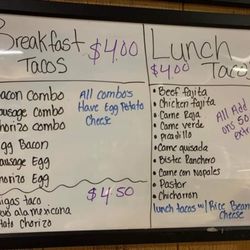 Breakfast
Tacos $4.00
Bacon Combo
Sausage Combo
Chorizo Combo
Egg Bacon
Sausage Egg
Chorizo Egg
All combos
Have Egg Potato
Cheese
$4.50
migas taco
a la mexicana
Chorizo
Lunch
$4.00 Taco
• Beef fajita
• Chicken fajita
• Carne Roja
• Carne verde
• Picadillo
• Carne guisada
• Bistec Ranchero
• Carne con Nopales
• Pastor
• Chicharron
All Add
ons 50
lunch tacos w/ Rice Bean
Cheese